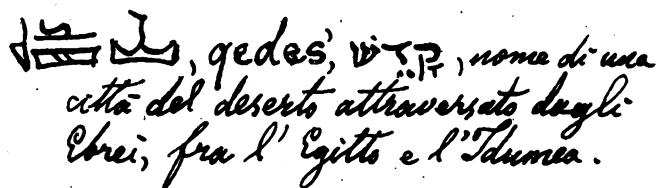 , qedes', קָדֵשׁ, nome di una
città del deserto attraversato dagli
Ebrei, fra l'Egitto e l'Idumea.